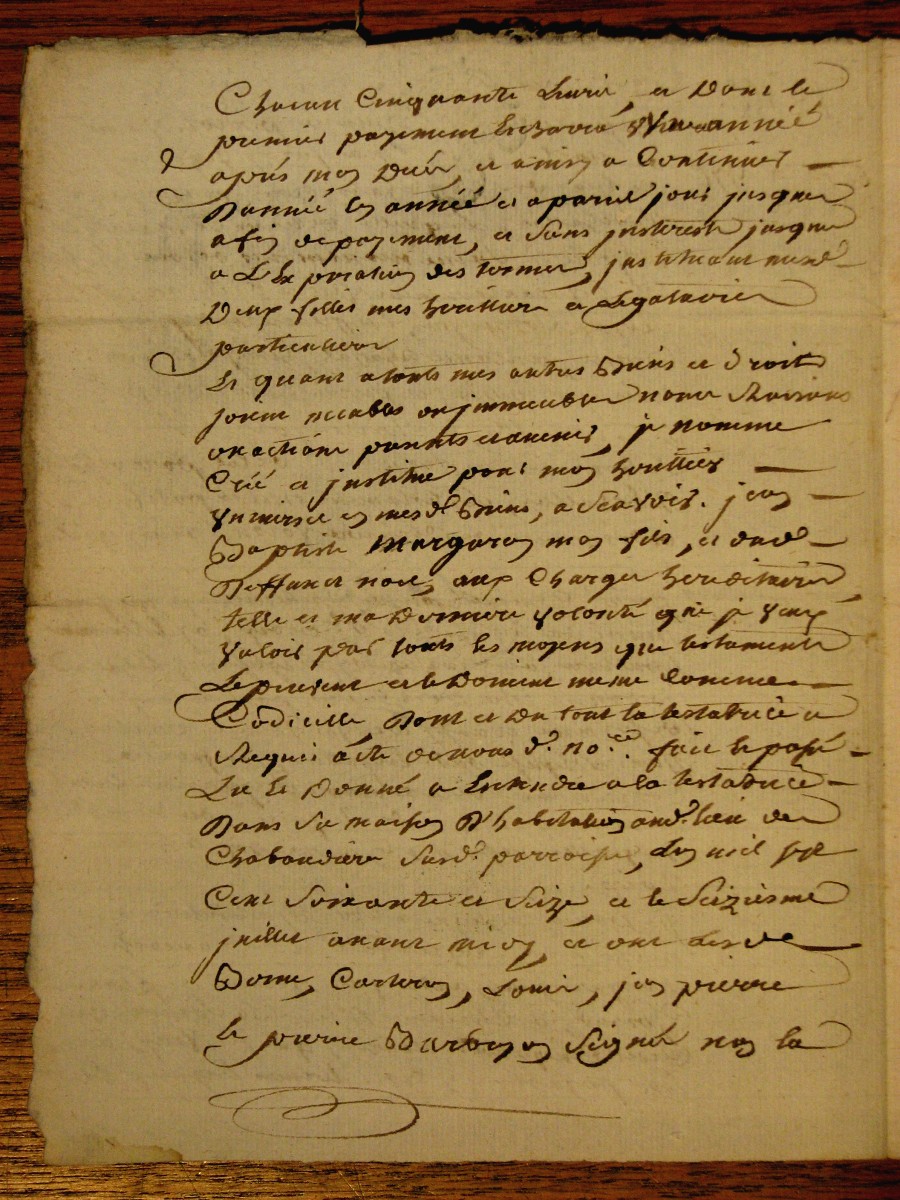 Chacun Cinquante Livres, et Dont le
premier payement Escherra Une année
aprés mon Décés, et ainsy a Continuer
D'année En année et a pareil jour jusques
a fin de payement, et sans jnterests jusques
a L'Expiation des termes, jnstituant mesd.
Deux filles mes heritiere et Legataires
particulieres
Et quant a touts mes autres Biens et Droits
soient meubles ou jmmeubles noms Raisons
ou actions presents et avenir, je nomme
Créé et jnstitue pour mon heritier
Universel en mesd. Biens, a Scavoir. jean
Baptiste Margaron mon fils, et dud.
Deffunct aux Charges hereditaires
telle et ma Derniere Volonté que je Veux
Valoir par touts les moyens que testaments
Le peuvent et le Doivent mesme Comme
Codicille, Dont et Du tout la testatrice a
Requis acte de nous d. no.re fait le posé
Lu Et Donné a Entendre a la testatrice
Dans Sa maison D'habitation aud. lieu de
Chabaudiere Susd. parroisse, L'an mil sept
Cent Soixante et Seize, et le Seizieme
juillet avant midy, et ont Lesd.
Bome, Carteron, Louis, jean pierre
et pierre signé non la